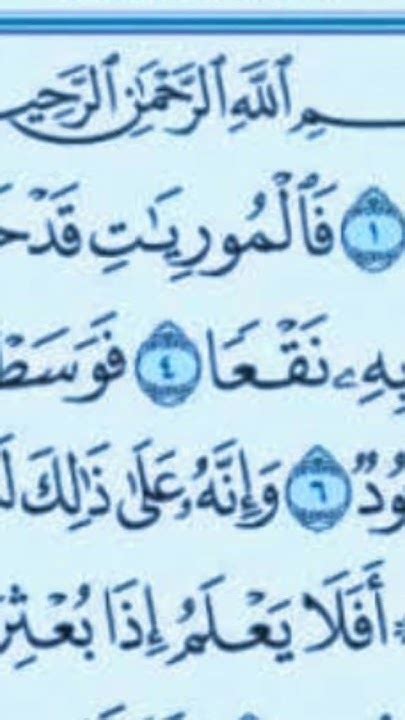 ـمِ ٱللَّهِ ٱلرَّحْمَٰنِ ٱلرَّحِيـ
١ فَٱلْمُورِيَٰتِ قَدْحـ
بِهِۦ نَقْعًا ٤ فَوَسَطْـ
ـودٌ ٦ وَإِنَّهُۥ عَلَىٰ ذَٰلِكَ لَـ
أَفَلَا يَعْلَمُ إِذَا بُعْثِرَ